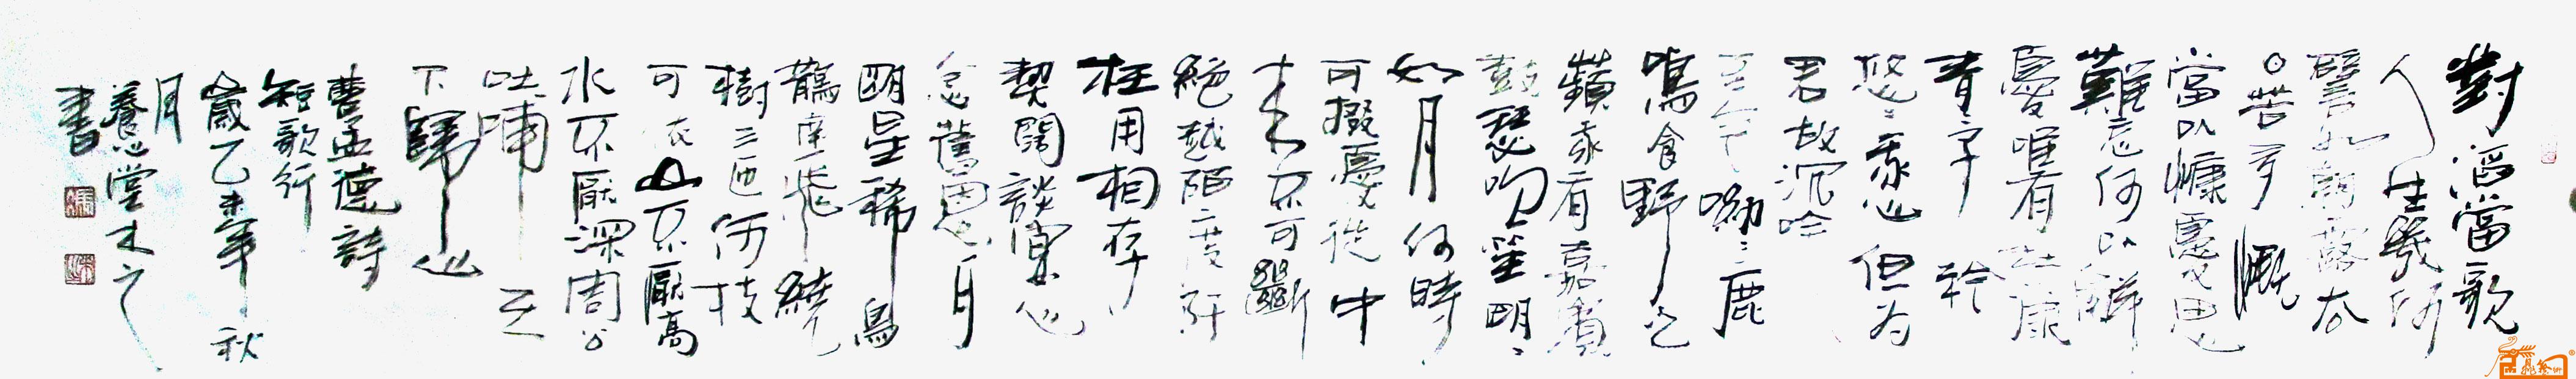 對酒當歌
人生幾何
譬如朝露去
日苦多慨
當以慷憂思
難忘何以解
憂唯有杜康
青々子衿
悠々我心但为
君故沉吟
至今呦々鹿
鳴食野之
蘋我有嘉賓
鼓瑟吹笙明々
如月何時
可掇憂從中
来不可斷
絕越陌度阡
枉用相存
契闊談宴心
念舊恩月
明星稀烏
鵲南飛繞
樹三匝何枝
可依山不厭高
水不厭深周公
吐哺天
下歸心
曹孟德詩
短歌行
歲乙未年秋
月
養心堂主之
書